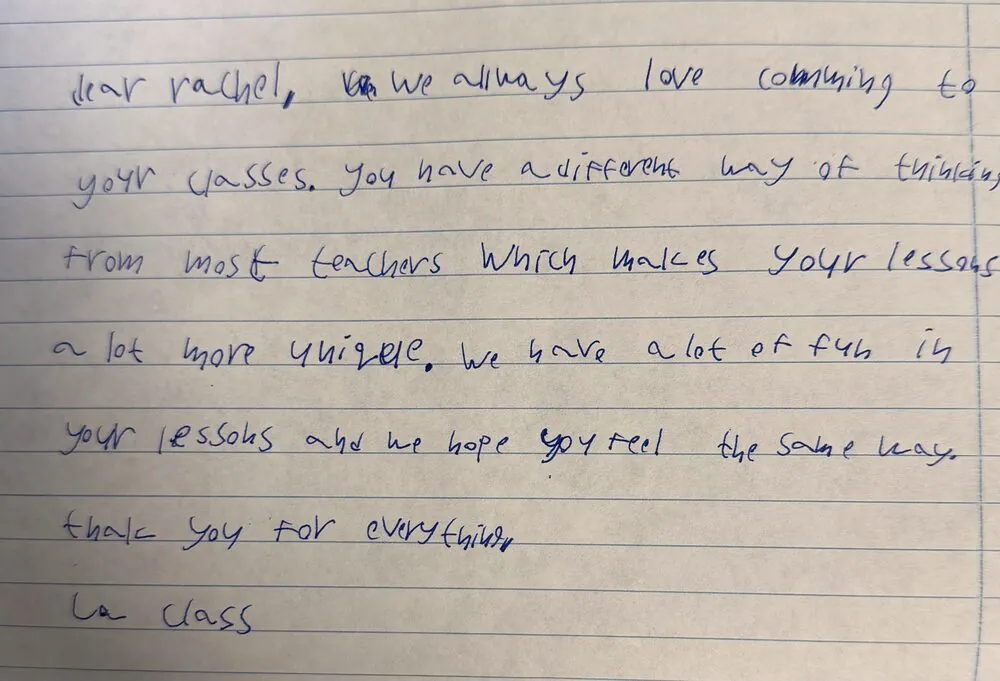 dear rachel, we allways love comming to
your classes. you have a different way of thinking
from most teachers which makes your lessons
a lot more uniqe. we have a lot of fun in
your lessons and we hope you feel the same way.
thak you for everything,
La class